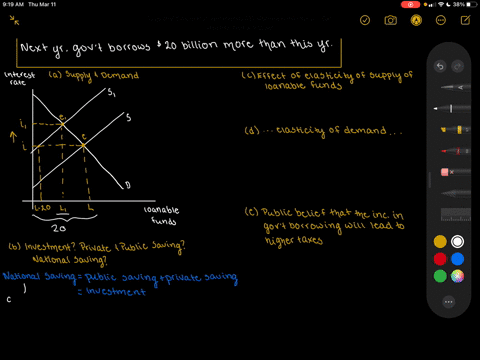 9:19 AM Thu Mar 11
38%
Next yr. gov't borrows $20 billion more than this yr.
interest rate
(a) Supply & Demand
S₁
S
e₁
e
i₁
i
D
L-20
L₁
L
20
loanable funds
(b) Investment? Private & Public Saving?
National Saving?
National Saving = public saving + private saving
= investment
(c) Effect of elasticity of supply of
loanable funds
(d) ... elasticity of demand...
(e) Public belief that the inc. in
gov't borrowing will lead to
higher taxes